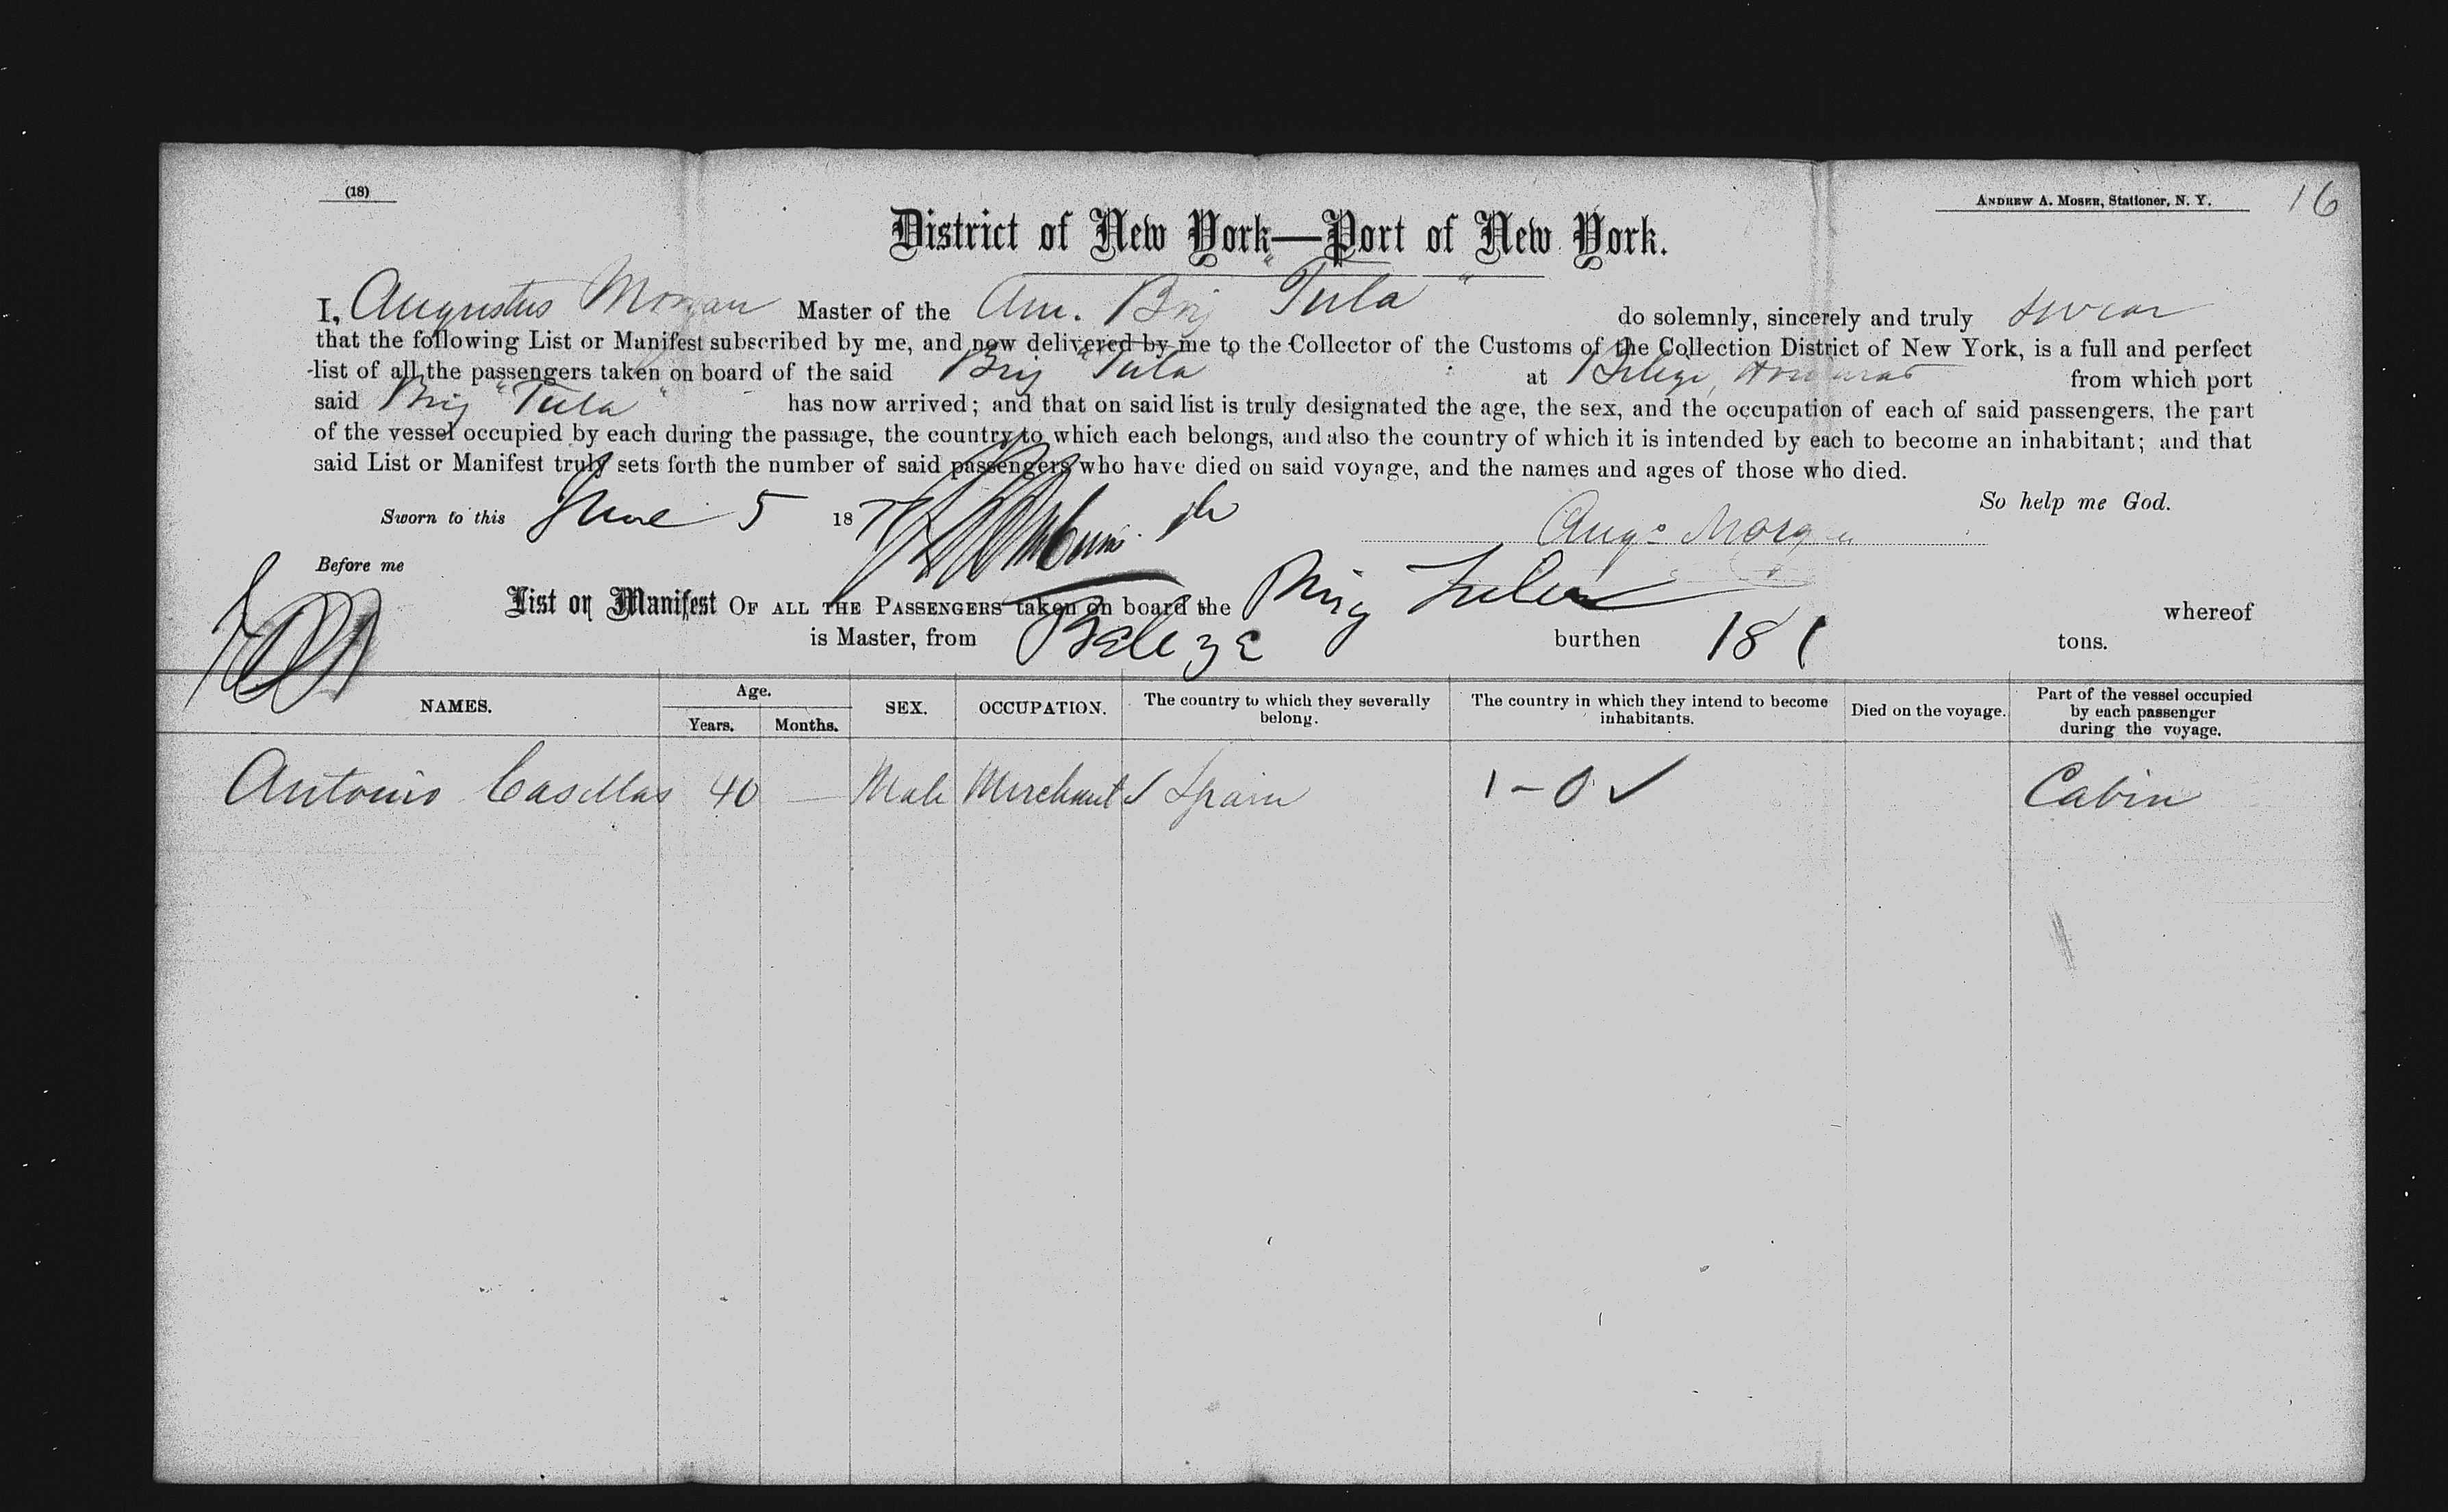 (18)
ANDREW A. MOSER, Stationer, N. Y.
16
District of New York—Port of New York.
I, Augustus Morgan Master of the Am. Brig "Tula" do solemnly, sincerely and truly swear
that the following List or Manifest subscribed by me, and now delivered by me to the Collector of the Customs of the Collection District of New York, is a full and perfect
list of all the passengers taken on board of the said Brig "Tula" at Belize, Honduras from which port
said Brig "Tula" has now arrived; and that on said list is truly designated the age, the sex, and the occupation of each of said passengers, the part
of the vessel occupied by each during the passage, the country to which each belongs, and also the country of which it is intended by each to become an inhabitant; and that
said List or Manifest truly sets forth the number of said passengers who have died on said voyage, and the names and ages of those who died.
So help me God.
Sworn to this June 5 187
Augs Morgan
Before me
List or Manifest OF ALL THE PASSENGERS taken on board the Brig Tula whereof
is Master, from Belize burthen 181 tons.
NAMES. Age. Years. Months. SEX. OCCUPATION. The country to which they severally belong. The country in which they intend to become inhabitants. Died on the voyage. Part of the vessel occupied by each passenger during the voyage.
Antonio Casellas 40 — Male Merchant ✓ Spain 1 – 0 ✓ Cabin